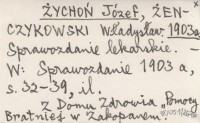 ŻYCHOŃ Józef, ŻEN-
CZYKOWSKI Władysław, 1903a
Sprawozdanie lekarskie. -
W: Sprawozdanie 1903 a,
s. 32-39, il.
Z Domu Zdrowia „Pomocy
Bratniej" w Zakopanem.